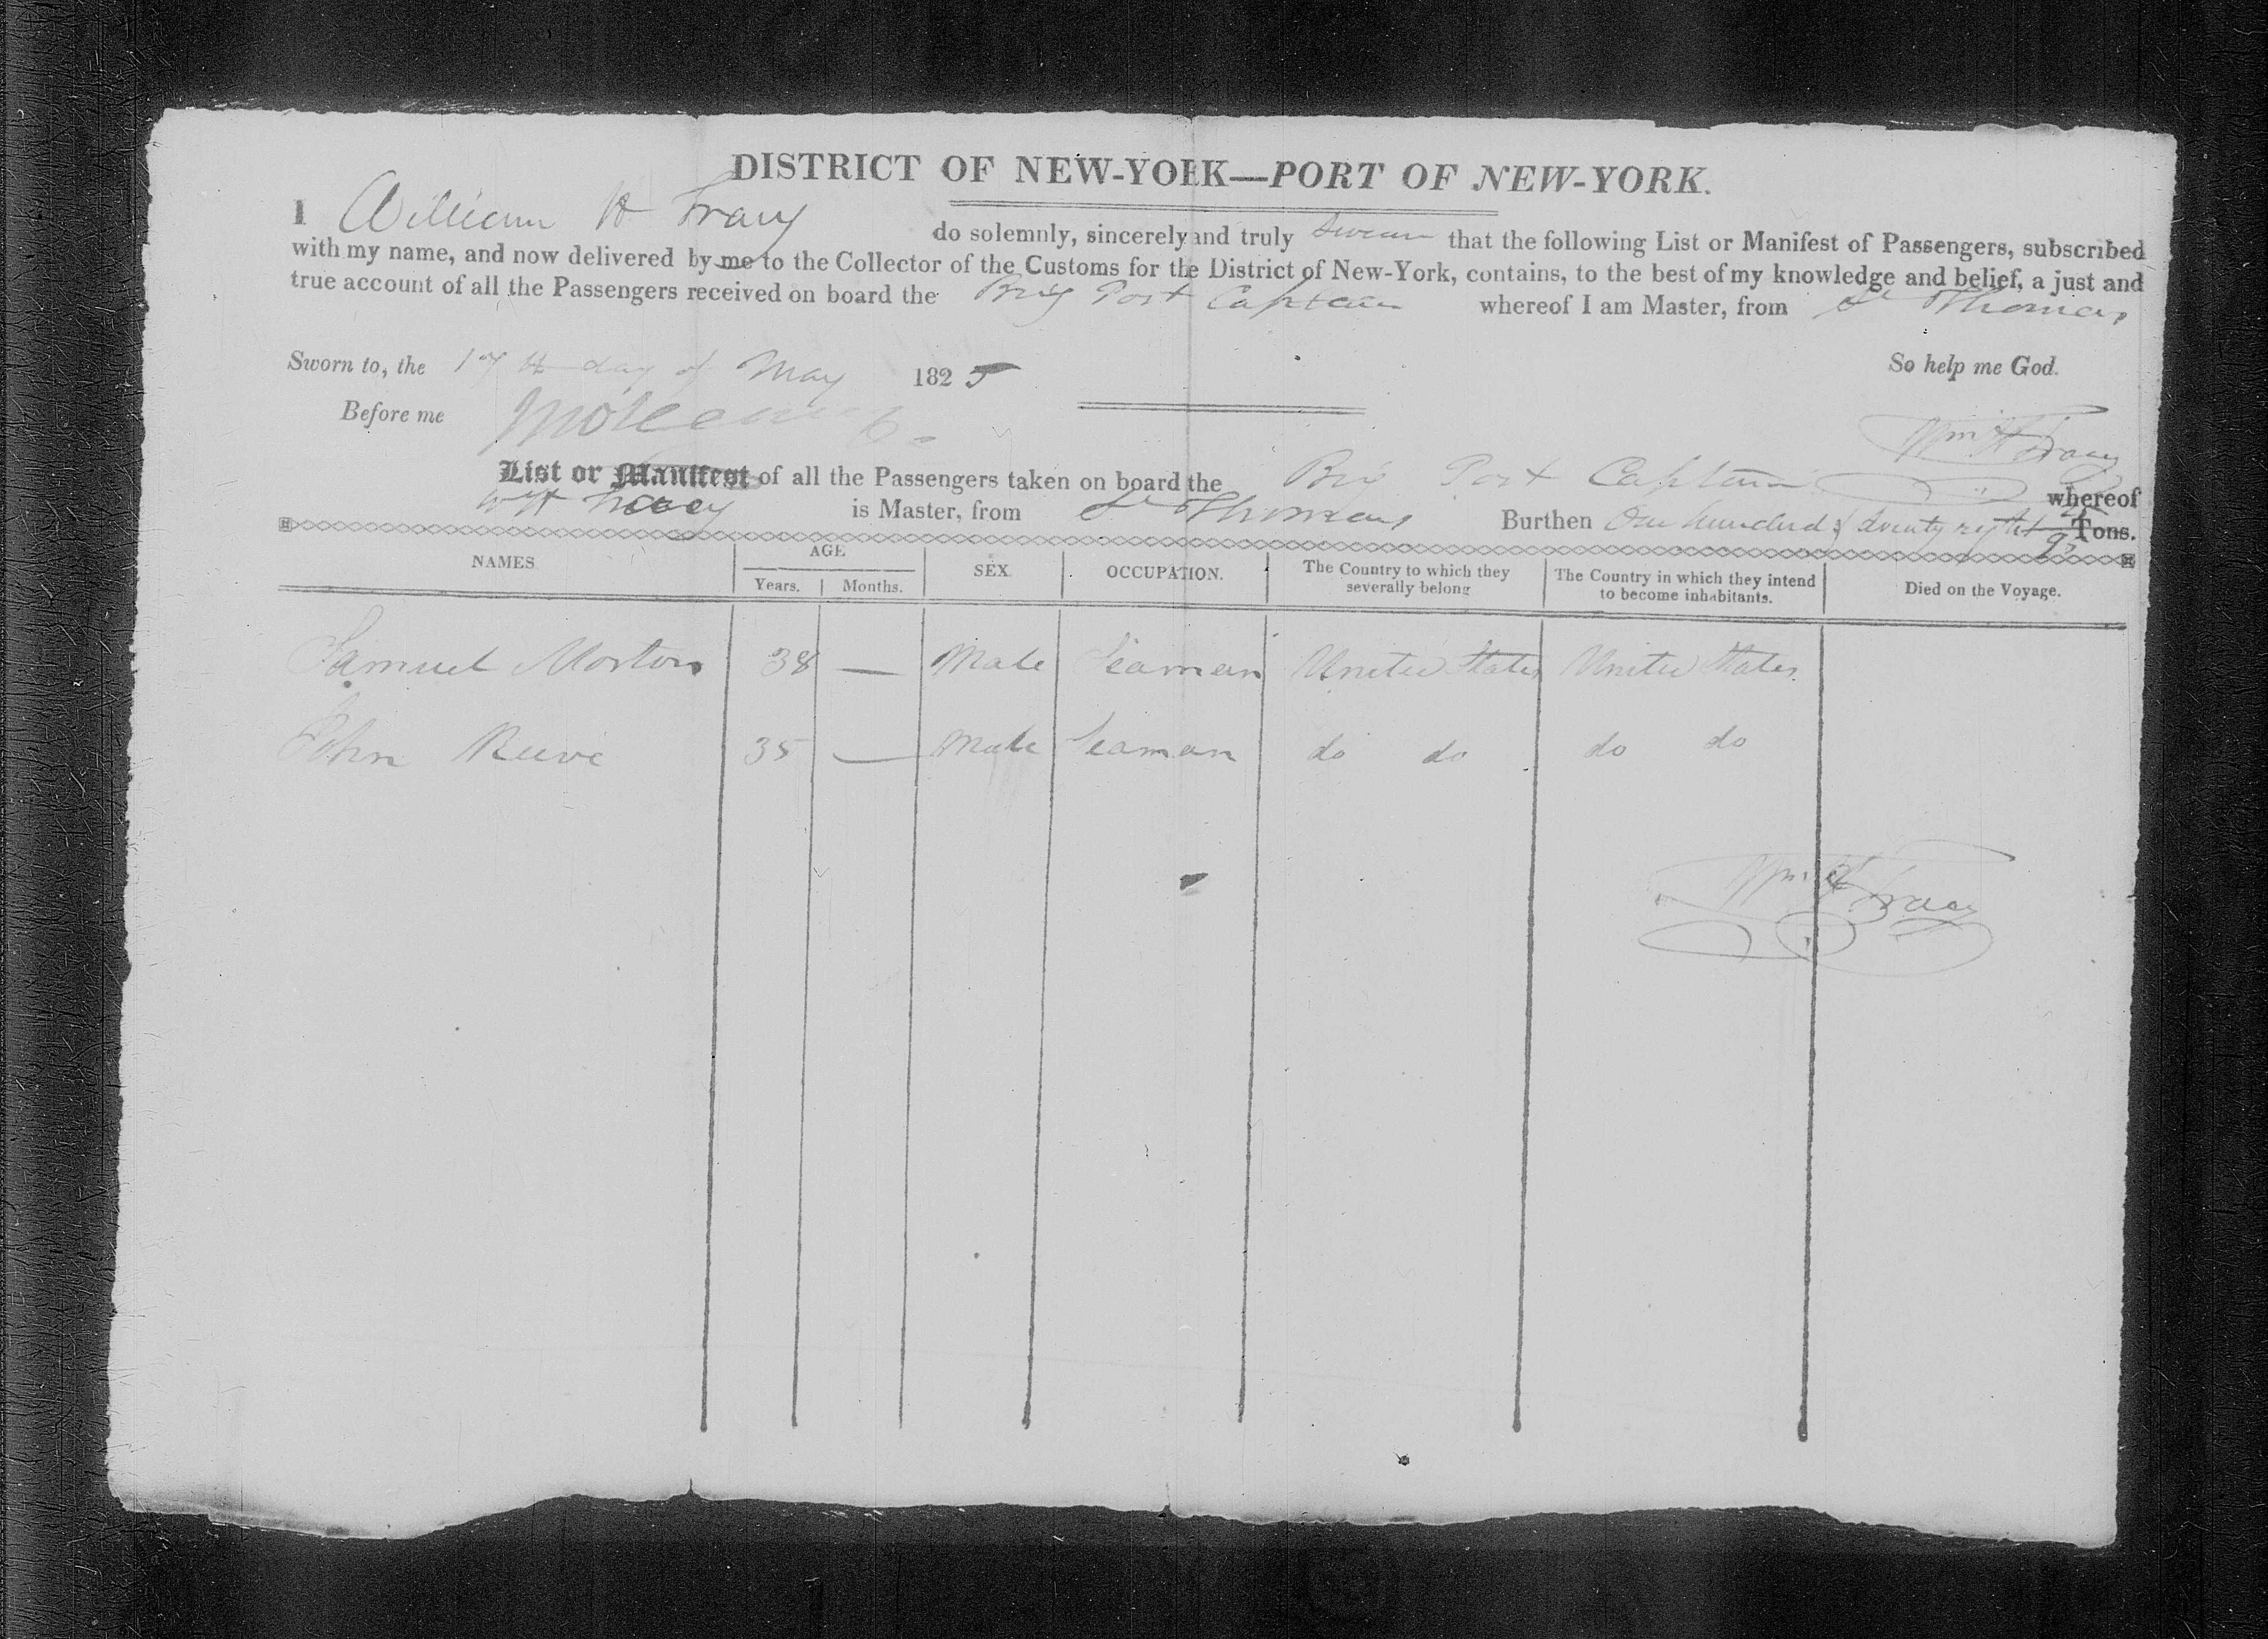 DISTRICT OF NEW-YORK—PORT OF NEW-YORK.
I William H Tracy do solemnly, sincerely and truly Swear that the following List or Manifest of Passengers, subscribed
with my name, and now delivered by me to the Collector of the Customs for the District of New-York, contains, to the best of my knowledge and belief, a just and
true account of all the Passengers received on board the Brig Post Captain whereof I am Master, from St Thomas
So help me God.
Sworn to, the 17th day of May 1825
Before me
Wm H Tracy
List or Manifest of all the Passengers taken on board the Brig Post Captain whereof
Wm H Tracy is Master, from St Thomas Burthen One hundred & Seventy eight Tons.
NAMES. AGE SEX. OCCUPATION. The Country to which they severally belong The Country in which they intend to become inhabitants. Died on the Voyage.
Years. Months.
Samuel Morton 38 — Male Seaman United States United States
John Reeve 35 — Male Seaman do do do do
Wm H Tracy